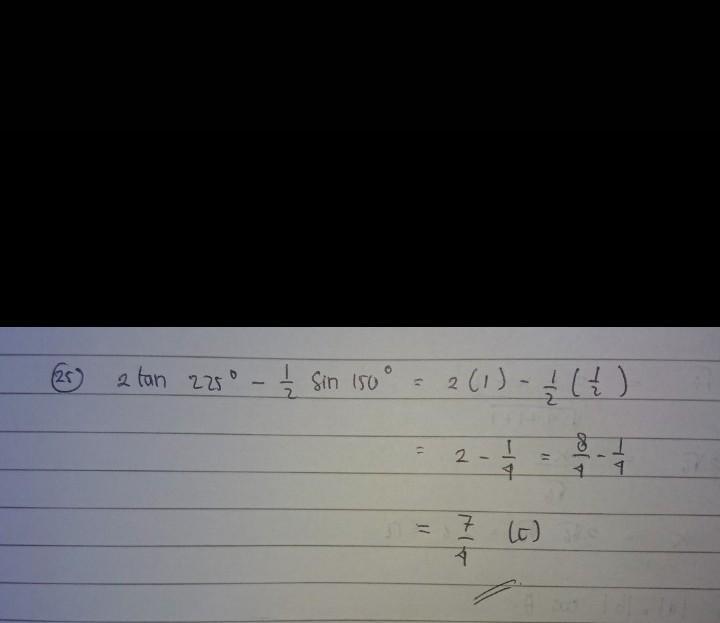 (25) 2 tan 225° - 1/2 sin 150° = 2(1) - 1/2 (1/2)
= 2 - 1/4 = 8/4 - 1/4
= 7/4 (C)